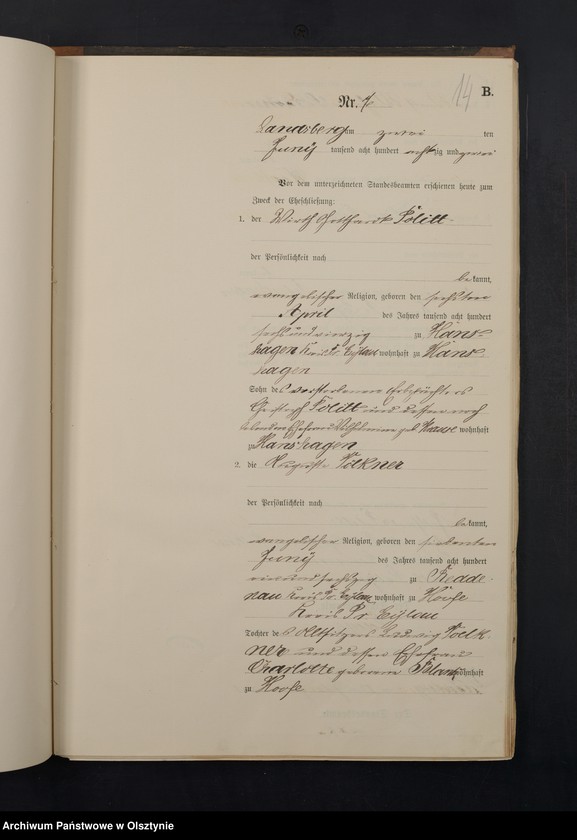 14
B.
Nr. 7
Landsberg am zwei ten
Juny tausend acht hundert achtzig und zwei
Vor dem unterzeichneten Standesbeamten erschienen heute zum
Zweck der Eheschließung:
1. der Wirth Gotthardt Politt
der Persönlichkeit nach
bekannt,
evangelischer Religion, geboren den sechsten
April des Jahres tausend acht hundert
sechsundvierzig zu Hans-
hagen Kreis Pr. Eylau wohnhaft zu Hans-
hagen
Sohn des verstorbenen
Politt und dessen noch
lebenden Ehefrau Wilhelmine geb wohnhaft
zu Hanshagen
2. die Auguste Völkner
der Persönlichkeit nach
bekannt,
evangelischer Religion, geboren den siebenten
Juny des Jahres tausend acht hundert
vierundsechzig zu Tredde-
nau Kreis Pr. Eylau wohnhaft zu Hoofe
Kreis Pr. Eylau
Tochter des Altsitzers Ludwig Voelk-
ner und dessen Ehefrau
Charlotte geborene wohnhaft
zu Hoofe
Archiwum Państwowe w Olsztynie